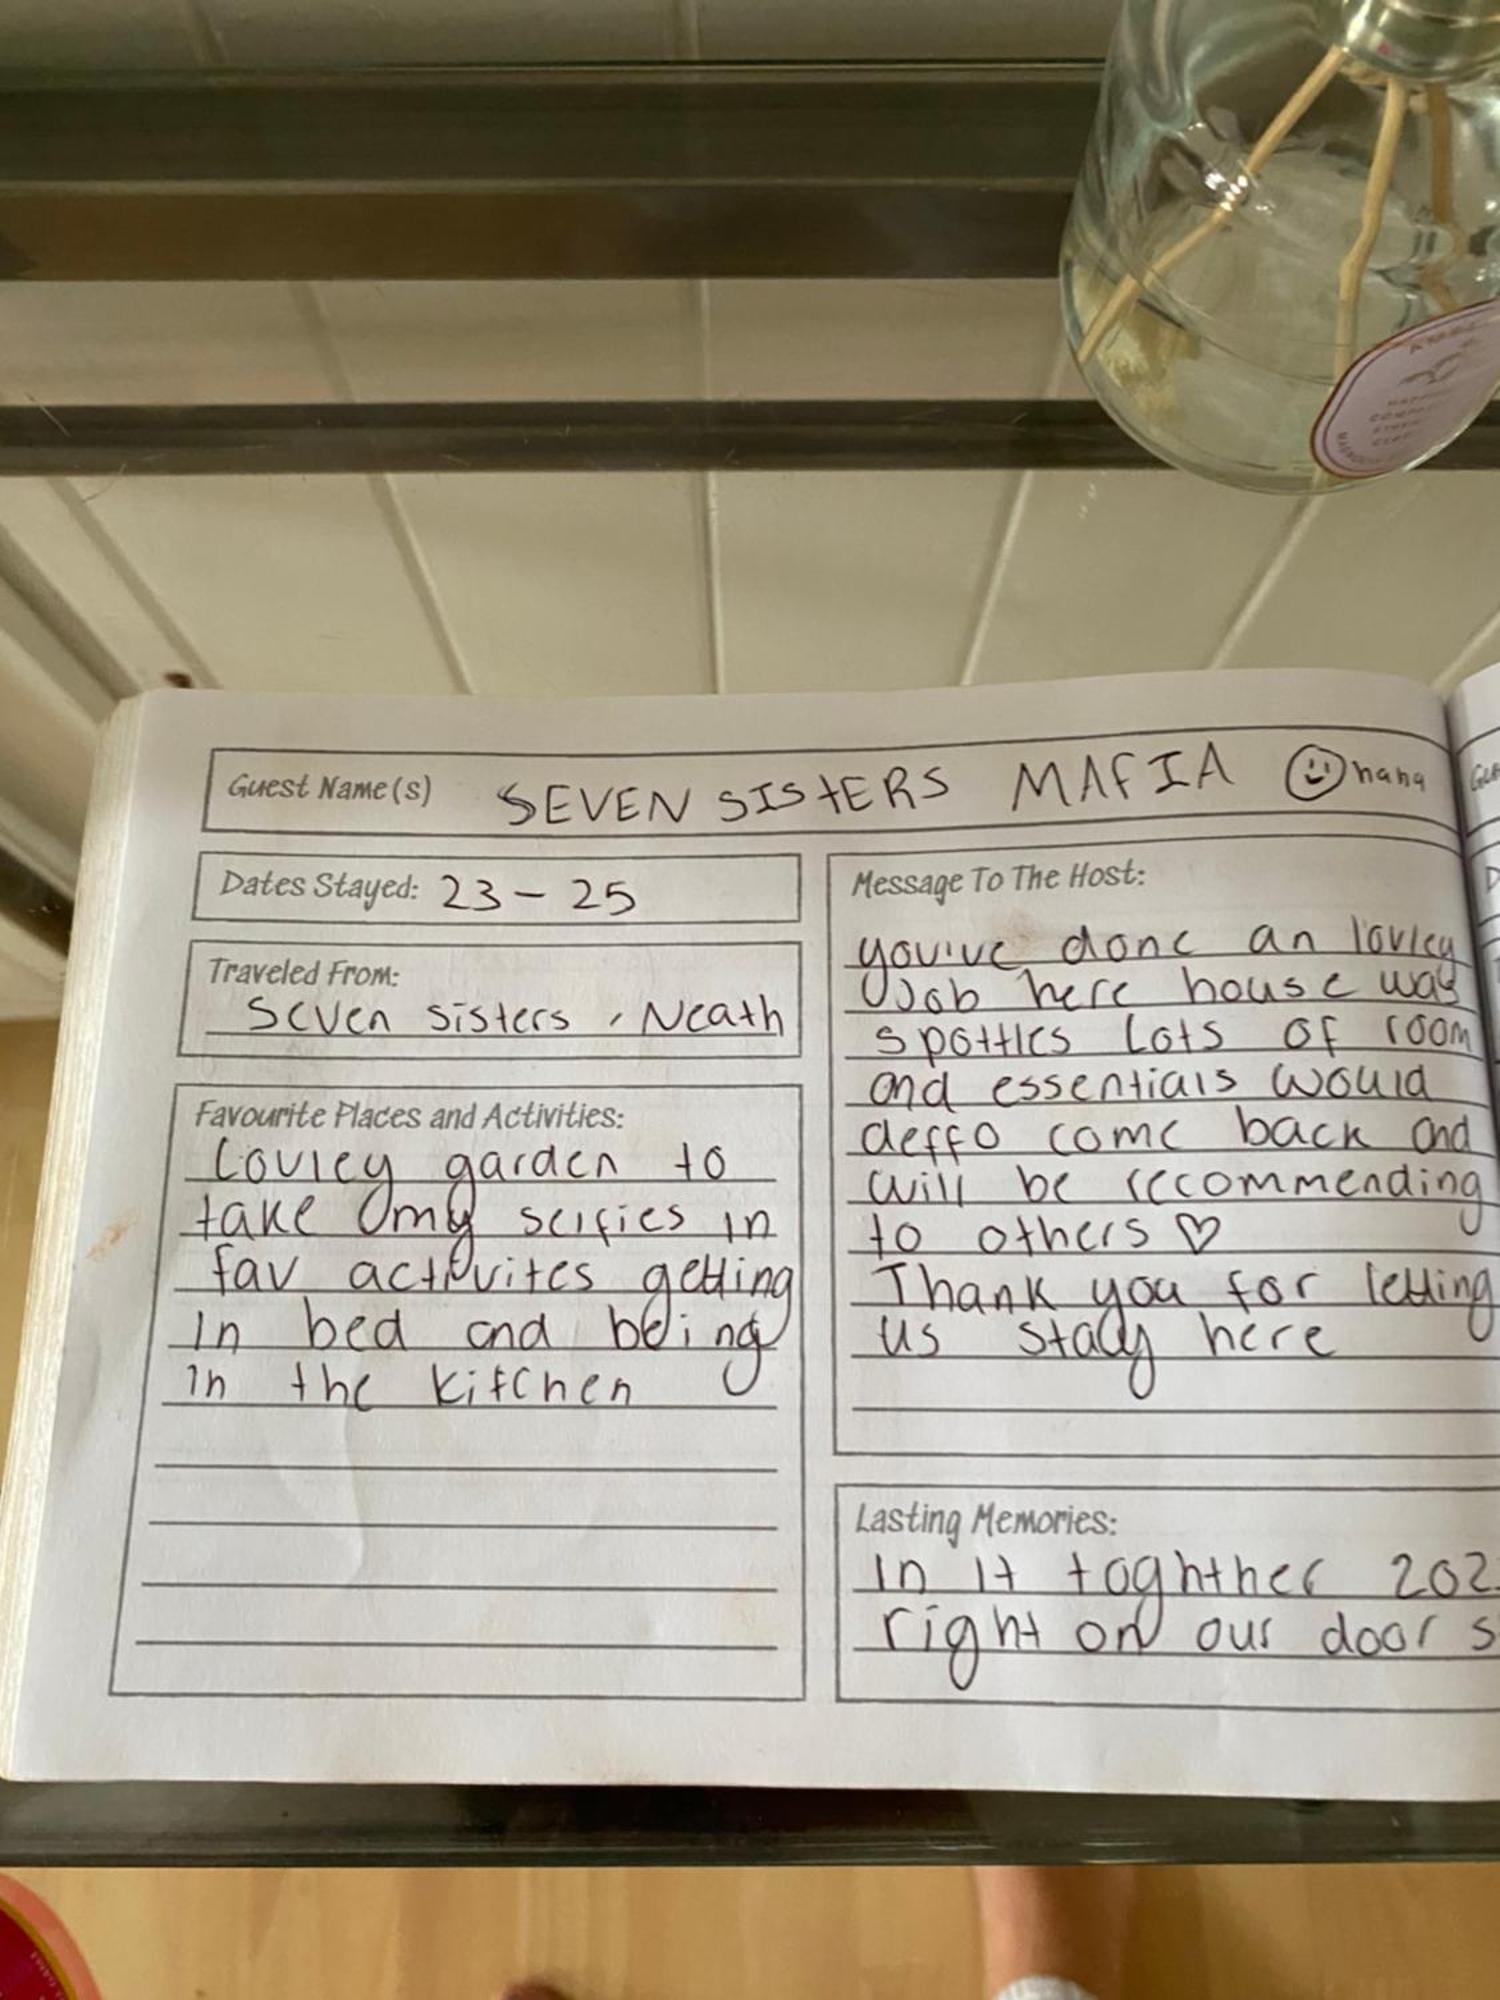 Guest Name(s) SEVEN SISTERS MAFIA haha
Dates Stayed: 23 - 25
Traveled From:
Seven sisters, Neath
Favourite Places and Activities:
Lovley garden to
take my selfies in
fav activites getting
in bed and being
in the kitchen
Message To The Host:
you've done an lovley
Job here house was
spottles Lots of room
and essentials would
deffo come back and
will be recommending
to others ♡
Thank you for letting
us stay here
Lasting Memories:
In It toghther 202
right on our door s